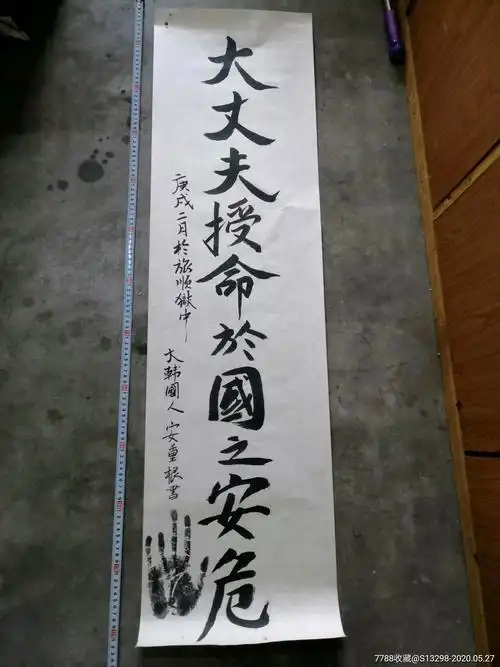 大丈夫授命於國之安危
庚戌二月於旅順獄中
大韩國人 安重根書
7788收藏@S13298-2020.05.27